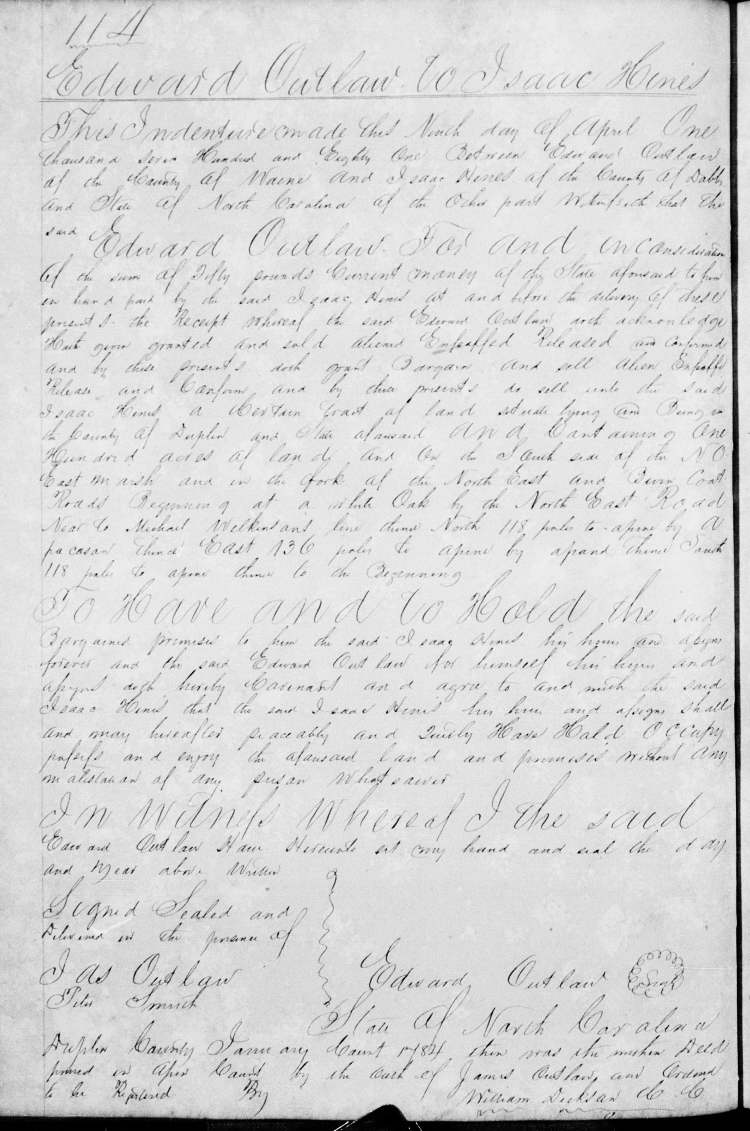 114
Edward Outlaw to Isaac Hines
This Indenture made this Ninth day of April One
thousand seven Hundred and Eighty One Between Edward Outlaw
of the County of Waine and Isaac Hines of the County of Dobbs
and State of North Carolina of the Other part Witnesseth that the
said Edward Outlaw For and in consideration
of the sum of Fifty pounds Current money of the State aforesaid to him
in hand paid by the said Isaac Hines at and before the delivery of these
presents the Receipt whereof the said Edward Outlaw doth acknowledge
Hath given granted and sold aliened Enfeoffed Released and Confirmed
and by these presents doth grant Bargain and sell alien Enfeoff
Release and Confirm and by these presents do sell unto the said
Isaac Hines a Certain tract of land situate lying and Being in
the County of Duplin and State aforesaid and Containing One
Hundred acres of land and On the South side of the N O
East marsh and in the fork of the North East and Burn Coat
Roads Beginning at a white Oak by the North East Road
Near to Michael Wilkinsons line thence North 118 poles to a pine by a
pacoson thence East 136 poles to a pine by a pond thence South
118 poles to a pine thence to the Beginning
To Have and to Hold the said
Bargained premises to him the said Isaac Hines his heirs and assigns
forever and the said Edward Outlaw for himself his heirs and
assigns doth hereby Covenant and agree to and with the said
Isaac Hines that the said Isaac Hines his heirs and assigns shall
and may hereafter peaceably and Quietly Have Hold Occupy
possess and enjoy the aforesaid land and premises without any
molistation of any person Whatsoever
In Witness Whereof I the said
Edward Outlaw Have Hereunto set my hand and seal the day
and year above Written
Signed Sealed and
Delivered in the presence of
Jas Outlaw
Edward Outlaw Seal
State of North Carolina
Duplin County January Court 1784 then was the within Deed
proved in Open Court by the Oath of James Outlaw and Ordered
to be Registered By William Dickson C. C.